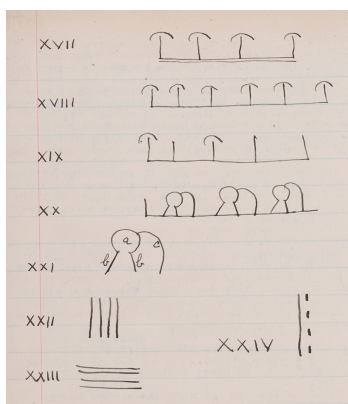 XVII
XVIII
XIX
XX
XXI a c
b b
XXII
XXIV
XXIII